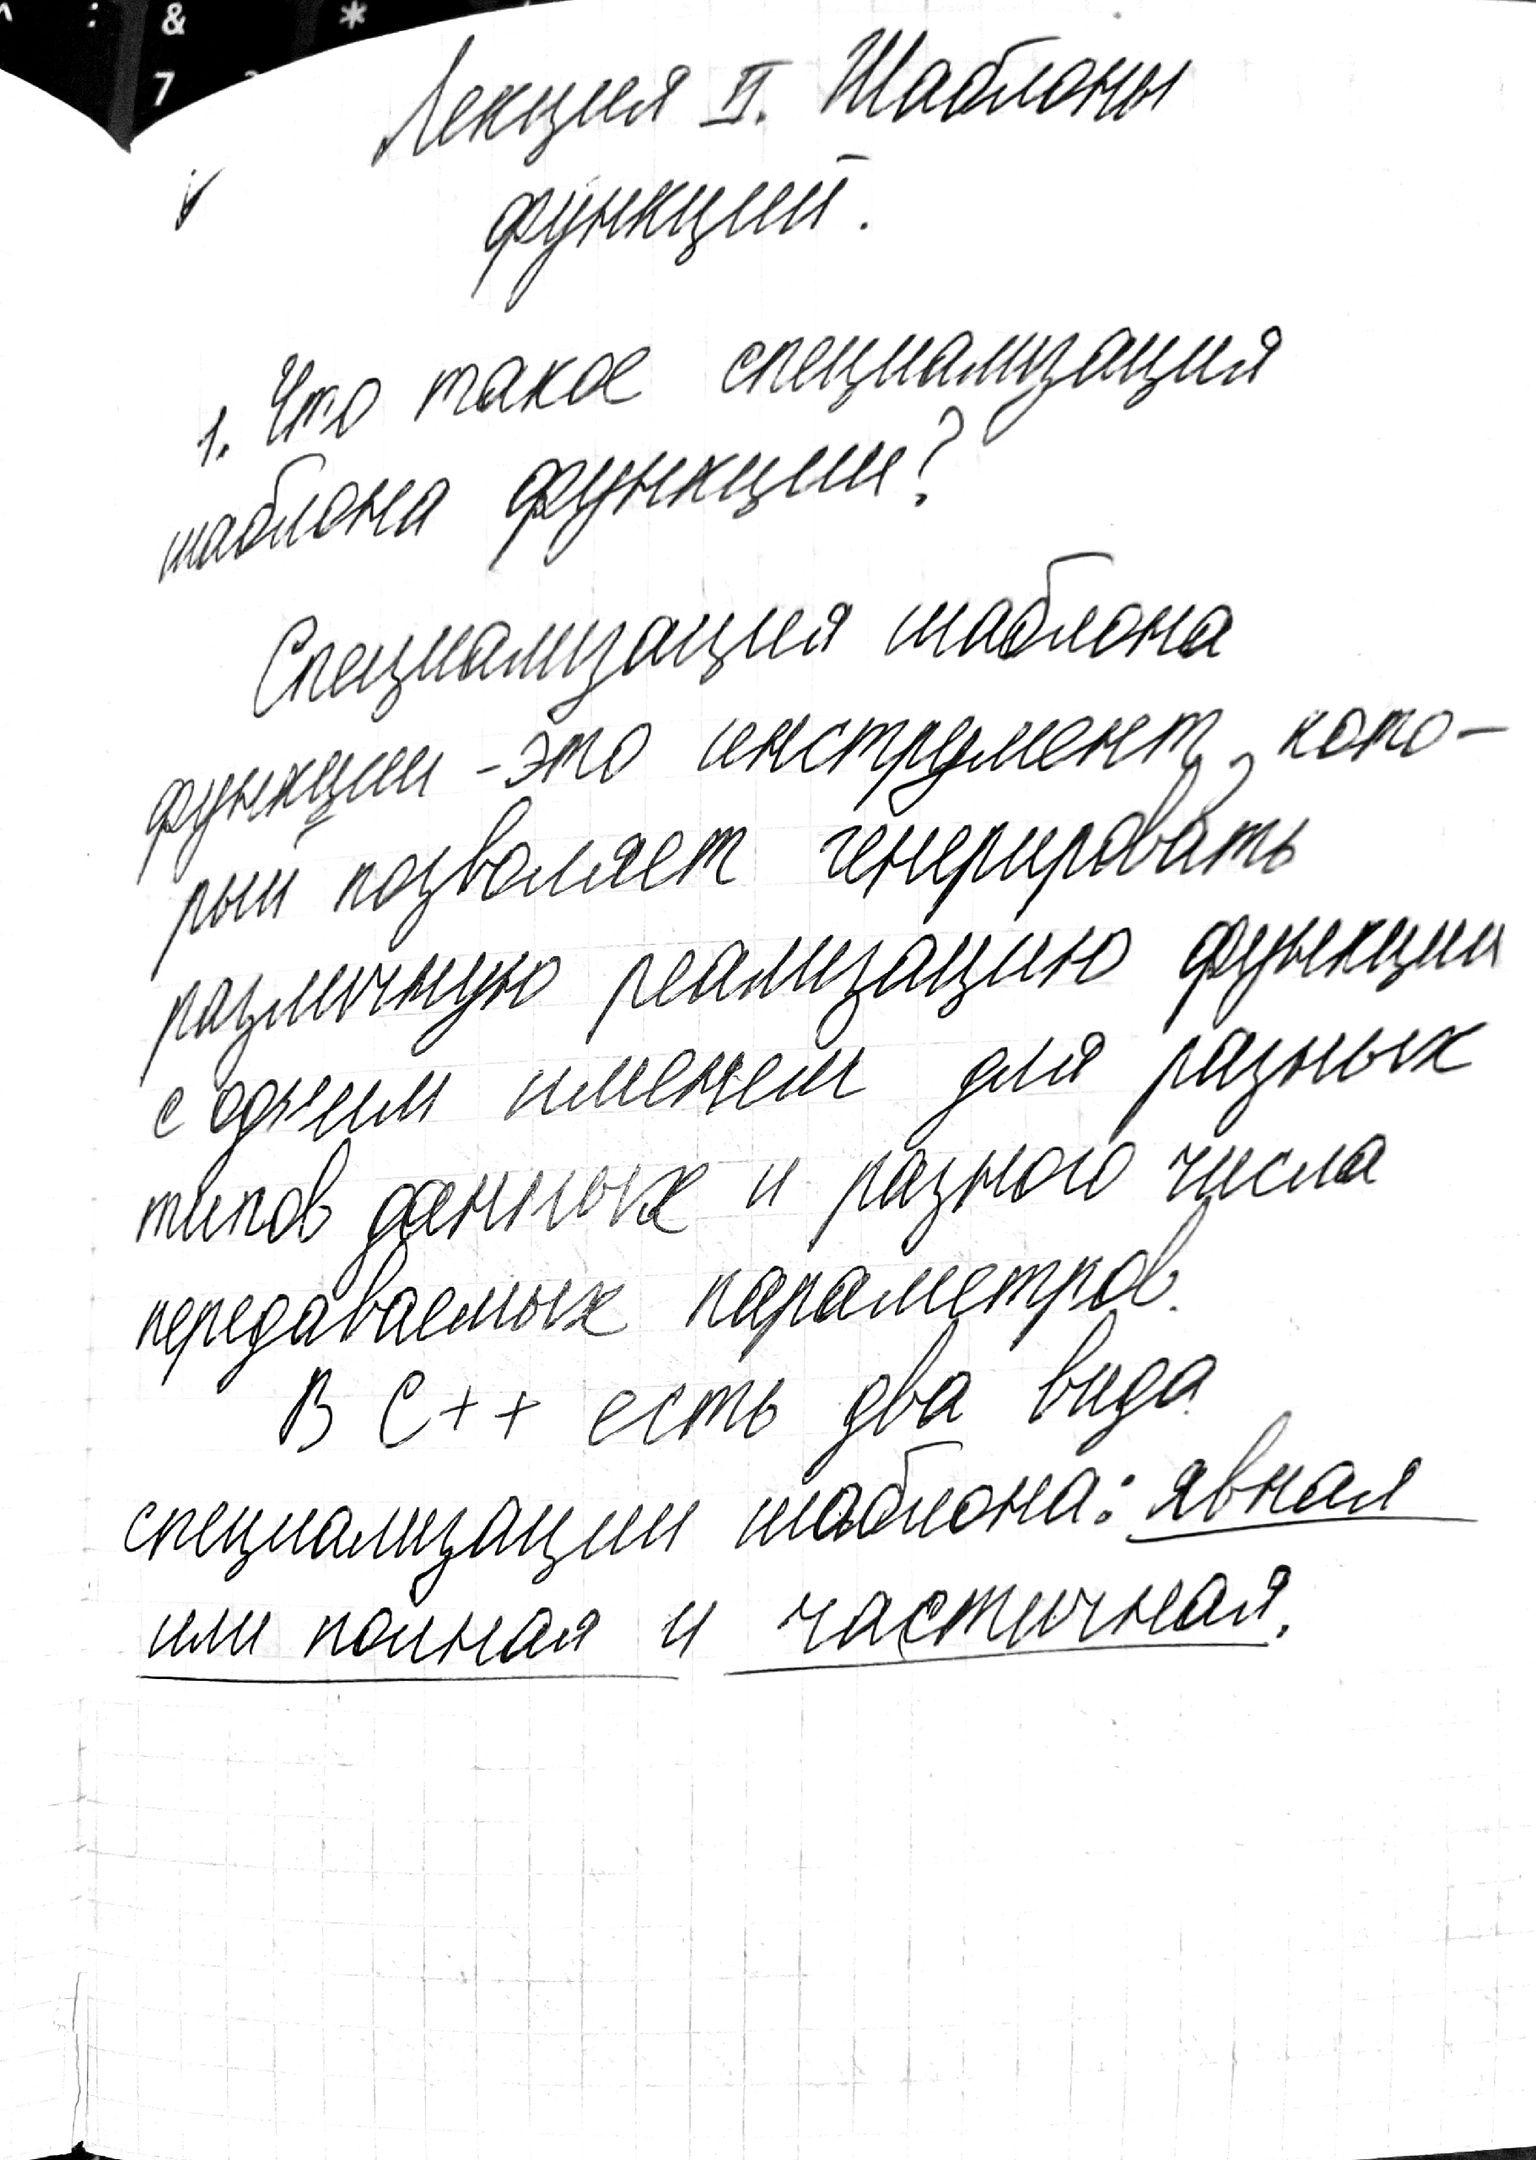 ^ : & *
7
Лекция II. Шаблоны
функций.
1. Что такое специализация
шаблона функции?
Специализация шаблона
функции - это инструмент, кото-
рый позволяет генерировать
различную реализацию функции
с одним именем для разных
типов данных и разного числа
передаваемых параметров.
В C++ есть два вида
специализации шаблона: явная
или полная и частичная.